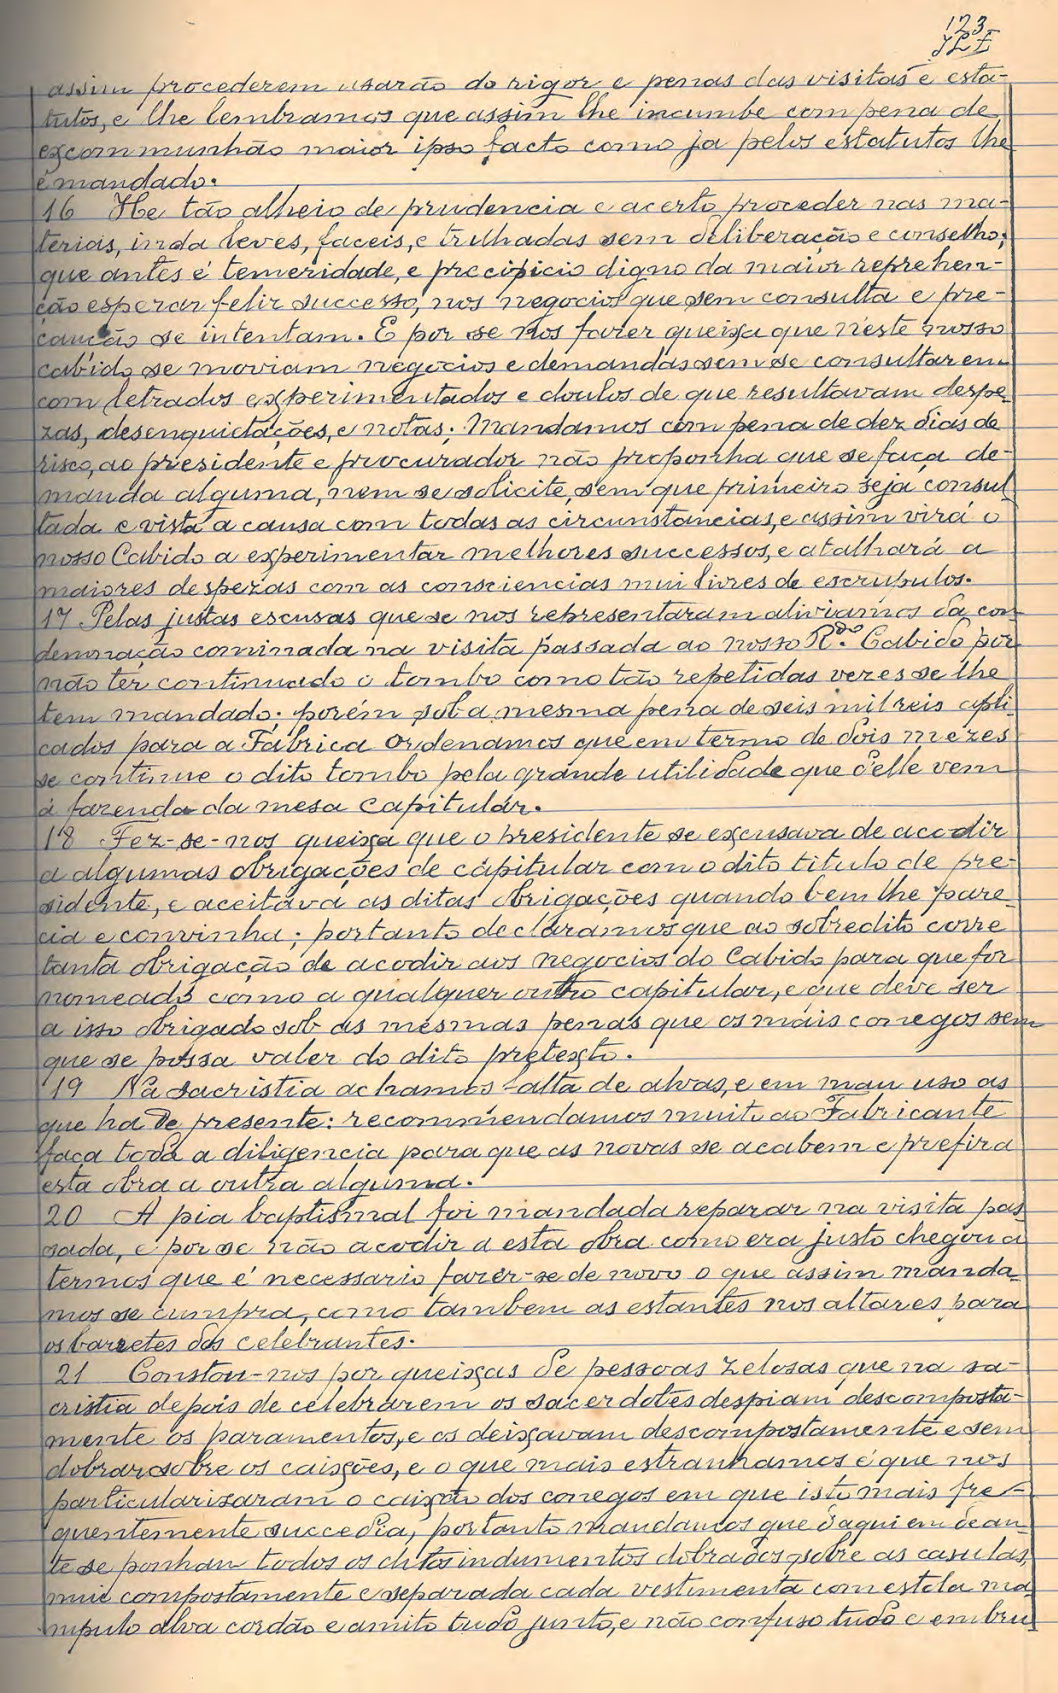 123
assim procederem usarão do rigor e penas das visitas e esta-
tutos, e lhe lembramos que assim lhe incumbe com pena de
excommunhão maior ipso facto como ja pelos estatutos lhe
é mandado.
16 He tão alheio de prudencia e acerto proceder nas ma-
terias, inda leves, faceis, e trilhadas sem deliberação e conselho;
que antes é temeridade, e precipicio digno da maior reprehen-
ção esperar felix successo, nos negocios que sem consulta e pre-
caução se intentam. E por se nos fazer queixa que n'este nosso
cabido se moviam negocios e demandas sem se consultarem
com letrados experimentados e doutos de que resultavam despe-
zas, desenquietações, e notas; Mandamos com pena de dez dias de
risco, ao presidente e procurador não proponha que se faça de-
manda alguma, nem se solicite, sem que primeiro seja consul
tada e vista a causa com todas as circunstancias, e assim virá o
nosso Cabido a experimentar melhores successos, e atalhará a
maiores despezas com as consciencias mui livres de escrupulos.
17 Pelas justas escusas que se nos representaram aliviamos da con-
demnação cominada na visita passada ao nosso R.do Cabido por
não ter continuado o tombo como tão repetidas vezes se lhe
tem mandado; porém sob a mesma pena de seis mil reis apli-
cados para a Fabrica Ordenamos que em termo de dois mezes
se continue o dito tombo pela grande utilidade que d'elle vem
á fazenda da mesa capitular.
18 Fez-se-nos queixa que o presidente se excusava de acodir
a algumas obrigações de capitular com o dito titulo de pre-
sidente, e aceitava as ditas obrigações quando bem lhe pare-
cia e convinha; portanto declaramos que ao sobredito corre
tanta obrigação de acodir aos negocios do Cabido para que for
nomeado como a qualquer outro capitular, e que deve ser
a isso obrigado sob as mesmas penas que os mais conegos sem
que se possa valer do dito pretexto.
19 Na sacristia achamos falta de alvas, e em mau uso as
que ha de presente: recommendamos muito ao Fabricante
faça toda a diligencia para que as novas se acabem e prefira
esta obra a outra alguma.
20 A pia baptismal foi mandada reparar na visita pas
sada, e por se não acodir a esta obra como era justo chegou a
termos que é necessario fazer-se de novo o que assim manda-
mos se cumpra, como tambem as estantes nos altares para
os barretes dos celebrantes.
21 Constou-nos por queixas de pessoas zelosas que na sa-
cristia depois de celebrarem os sacerdotes despiam descomposta-
mente os paramentos, e os deixavam descompostamente e sem
dobrar sobre os caixões, e o que mais estranhamos é que nos
particularisaram o caixão dos conegos em que isto mais fre-
quentemente succedia, portanto mandamos que d'aqui em dean-
te se ponham todos os ditos indumentos dobrados sobre as casulas,
mui compostamente e separada cada vestimenta com estola ma
nipulo alva cordão e amito tudo junto, e não confuso tudo e embru